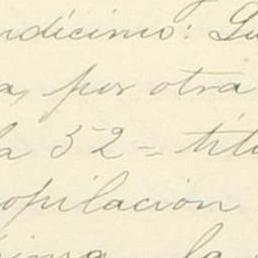 ndécimo: Lu
a, por otra
la 52= títu
opilación
la